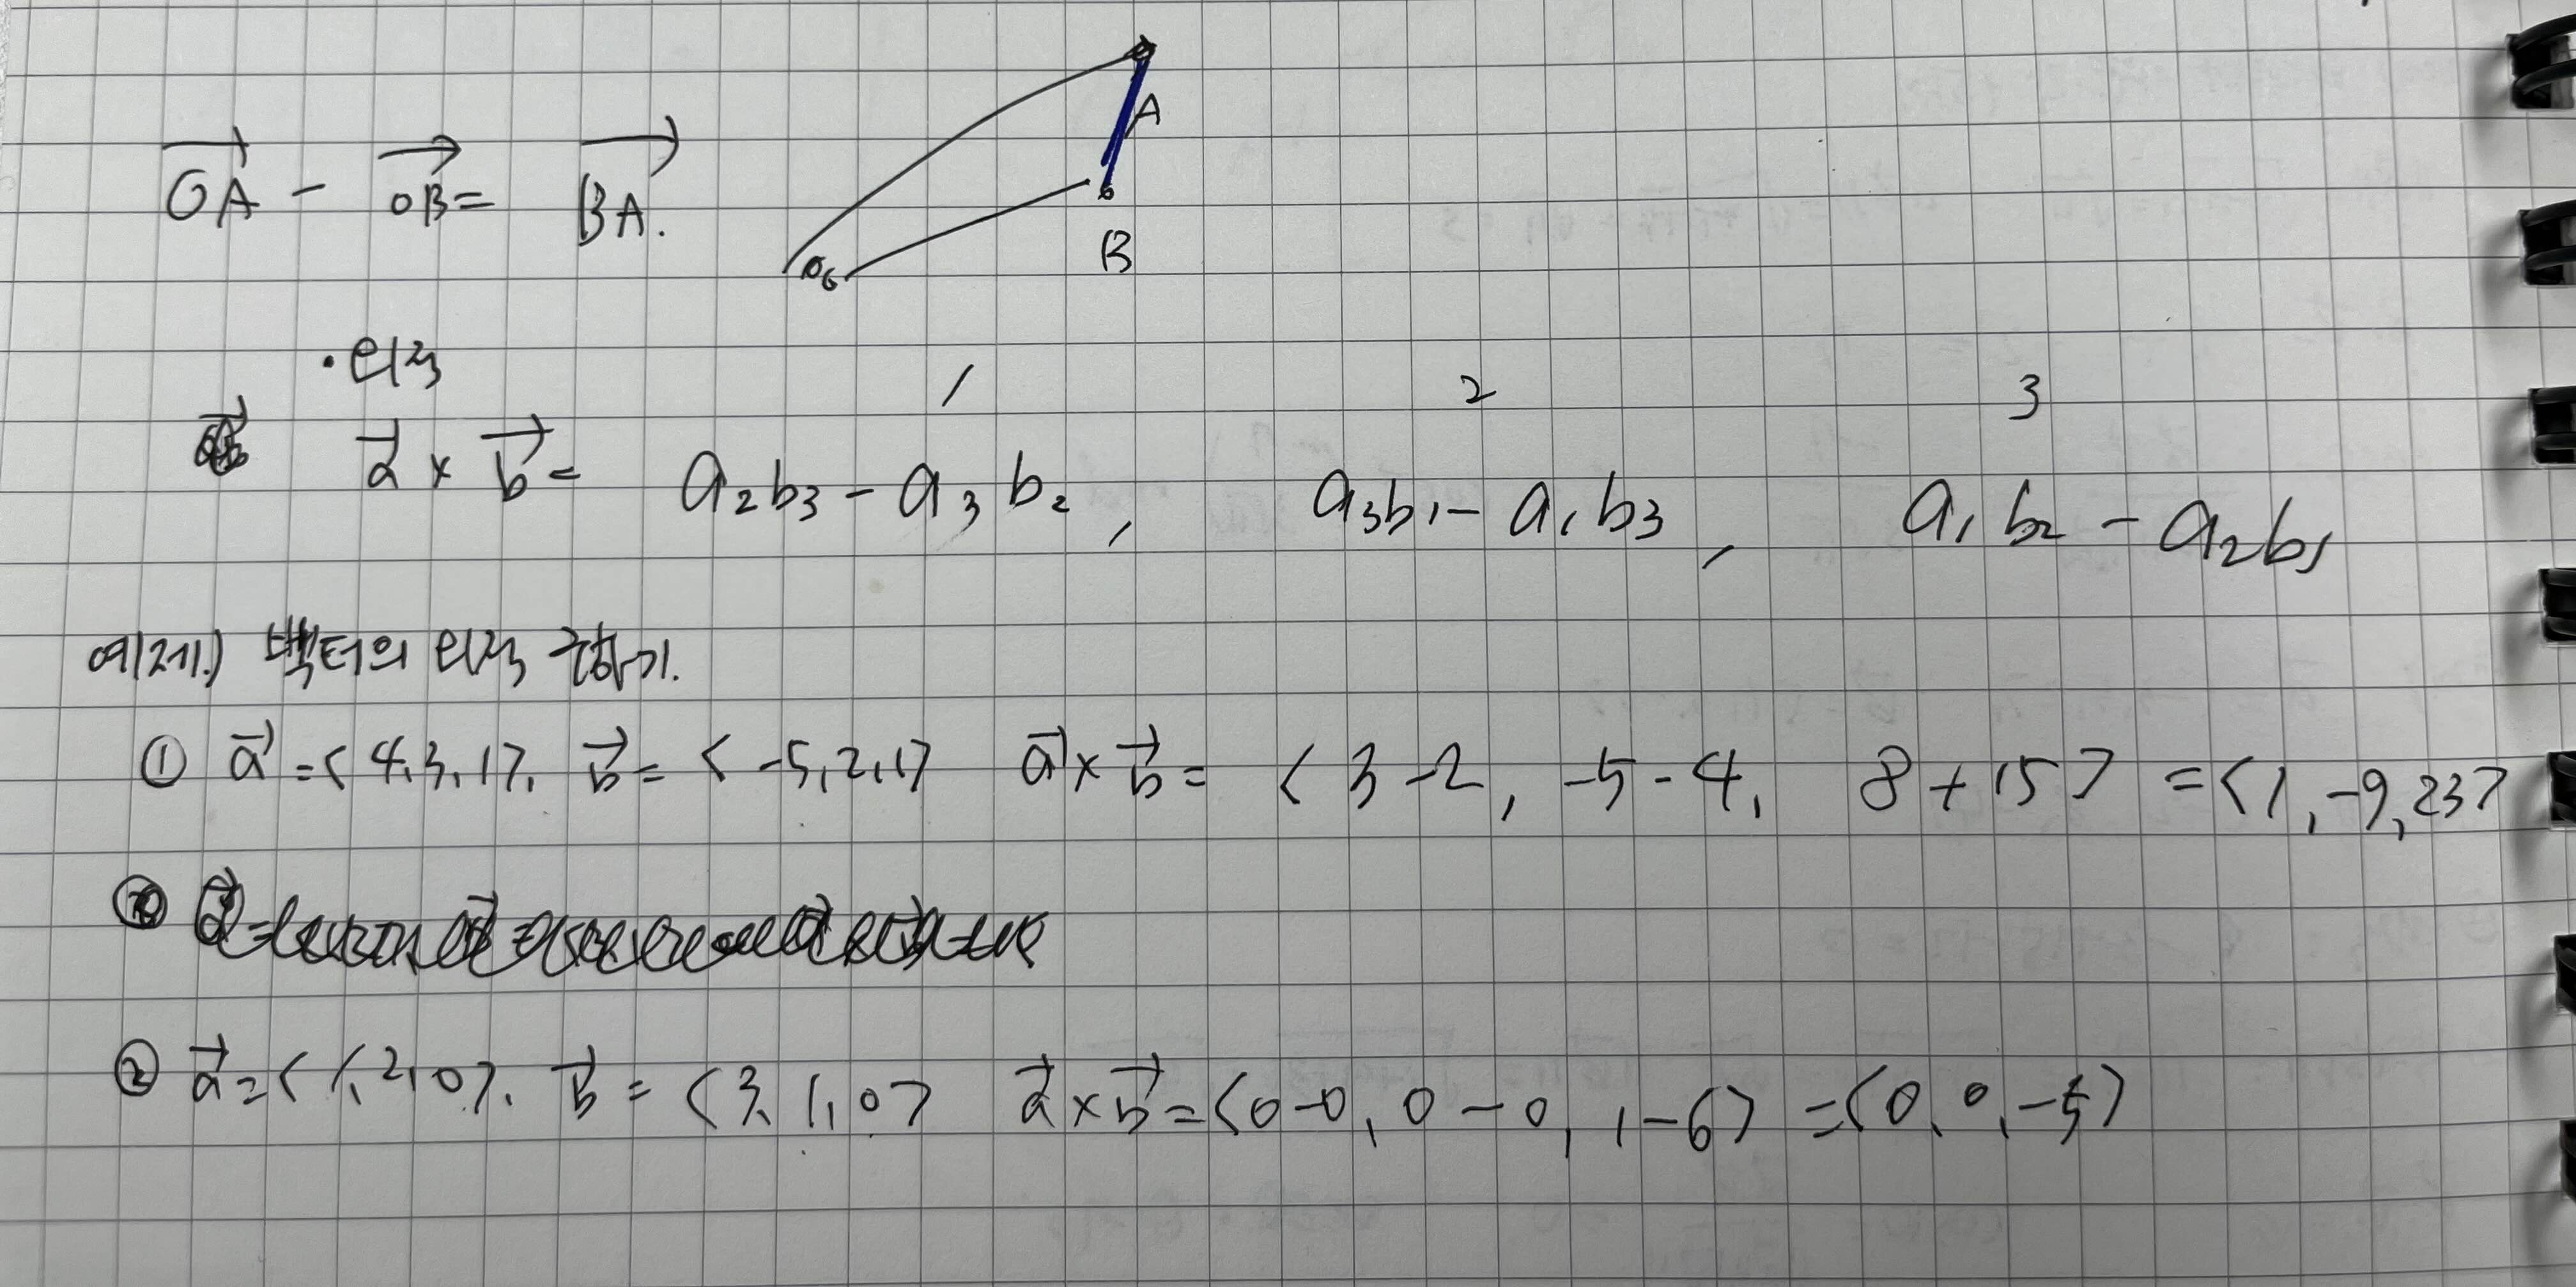 OA - OB = BA.
A
B
0
· 외적
1 2 3
a × b = a₂b₃ - a₃b₂ , a₃b₁ - a₁b₃ , a₁b₂ - a₂b₁
예제.) 벡터의 외적 구하기.
① a = < 4, 3, 1 >, b = < -5, 2, 1 > a × b = < 3 - 2, -5 - 4, 8 + 15 > = < 1, -9, 23 >
② a = < 1, 2, 0 >, b = < 3, 1, 0 > a × b = < 0 - 0, 0 - 0, 1 - 6 > = < 0, 0, -5 >